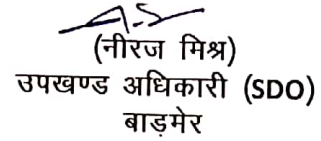 (नीरज मिश्र)
उपखण्ड अधिकारी (SDO)
बाड़मेर